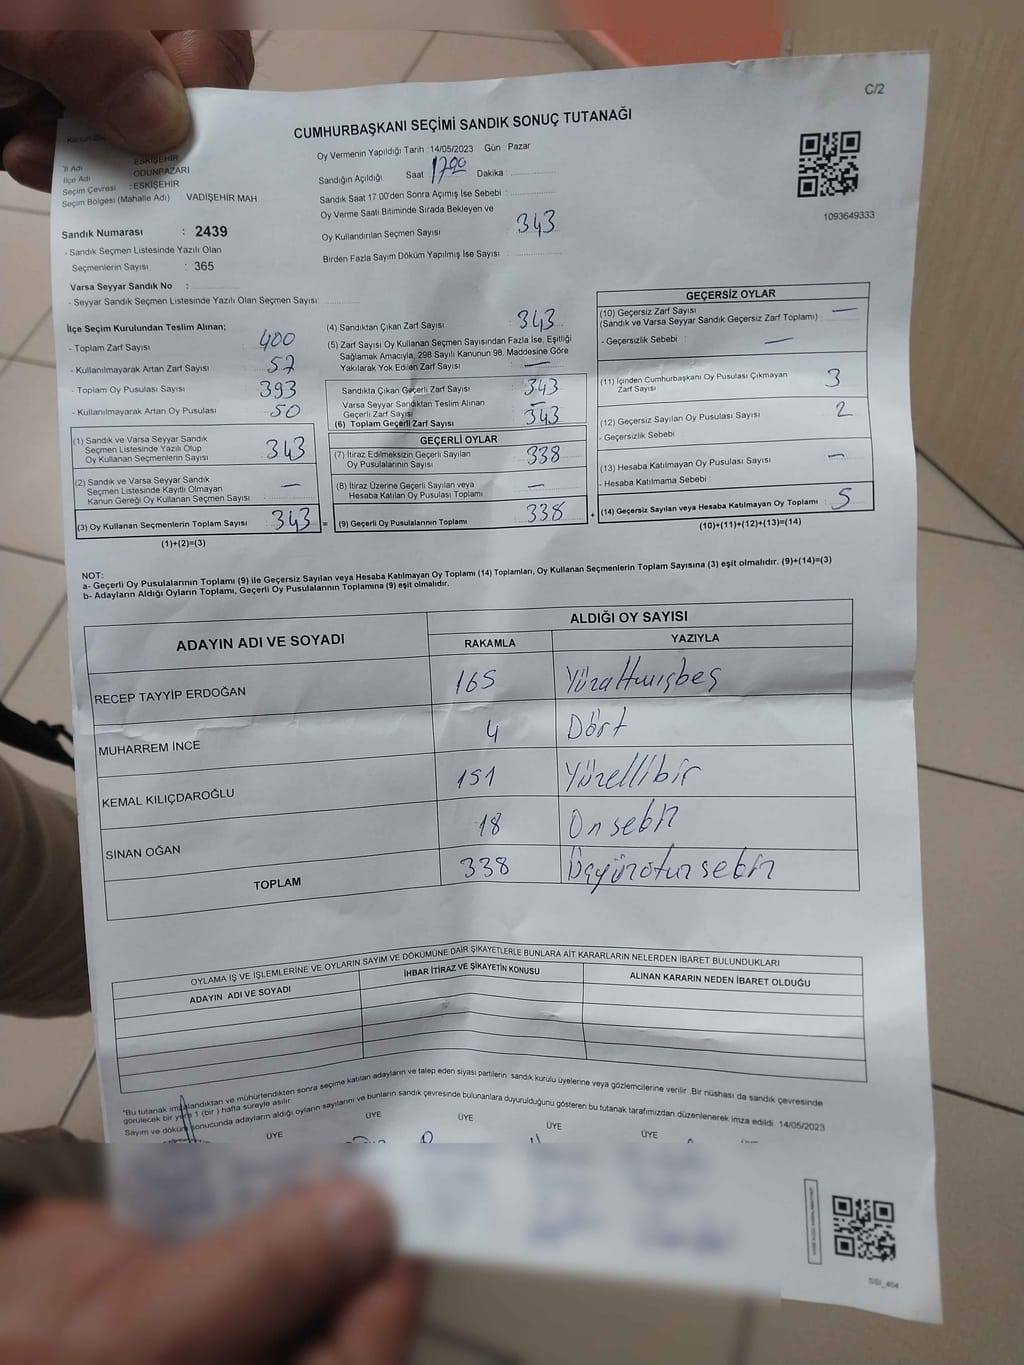 C/2
CUMHURBAŞKANI SEÇİMİ SANDIK SONUÇ TUTANAĞI
İl Adı ESKİŞEHİR
İlçe Adı ODUNPAZARI
Seçim Çevresi : ESKİŞEHİR
Seçim Bölgesi (Mahalle Adı) VADİŞEHİR MAH
Sandık Numarası : 2439
- Sandık Seçmen Listesinde Yazılı Olan
Seçmenlerin Sayısı : 365
Varsa Seyyar Sandık No :
- Seyyar Sandık Seçmen Listesinde Yazılı Olan Seçmen Sayısı:
Oy Vermenin Yapıldığı Tarih : 14/05/2023 Gün : Pazar
Sandığın Açıldığı Saat 17:00 Dakika :
Sandık Saat 17:00'den Sonra Açımış İse Sebebi :
Oy Verme Saati Bitiminde Sırada Bekleyen ve
Oy Kullandırılan Seçmen Sayısı : 343
Birden Fazla Sayım Döküm Yapılmış İse Sayısı :
1093649333
İlçe Seçim Kurulundan Teslim Alınan;
- Toplam Zarf Sayısı : 400
- Kullanılmayarak Artan Zarf Sayısı : 57
- Toplam Oy Pusulası Sayısı : 393
- Kullanılmayarak Artan Oy Pusulası : 50
(1) Sandık ve Varsa Seyyar Sandık
Seçmen Listesinde Yazılı Olup
Oy Kullanan Seçmenlerin Sayısı : 343
(2) Sandık ve Varsa Seyyar Sandık
Seçmen Listesinde Kayıtlı Olmayan
Kanun Gereği Oy Kullanan Seçmen Sayısı : —
(3) Oy Kullanan Seçmenlerin Toplam Sayısı : 343 =
(1)+(2)=(3)
(4) Sandıktan Çıkan Zarf Sayısı : 343
(5) Zarf Sayısı Oy Kullanan Seçmen Sayısından Fazla İse, Eşitliği
Sağlamak Amacıyla, 298 Sayılı Kanunun 98. Maddesine Göre
Yakılarak Yok Edilen Zarf Sayısı : —
Sandıkta Çıkan Geçerli Zarf Sayısı : 343
Varsa Seyyar Sandıktan Teslim Alınan
Geçerli Zarf Sayısı : —
(6) Toplam Geçerli Zarf Sayısı : 343
GEÇERLİ OYLAR
(7) İtiraz Edilmeksizin Geçerli Sayılan
Oy Pusulalarının Sayısı : 338
(8) İtiraz Üzerine Geçerli Sayılan veya
Hesaba Katılan Oy Pusulası Toplamı : —
(9) Geçerli Oy Pusulalarının Toplamı : 338 +
GEÇERSİZ OYLAR
(10) Geçersiz Zarf Sayısı
(Sandık ve Varsa Seyyar Sandık Geçersiz Zarf Toplamı) : —
- Geçersizlik Sebebi : —
(11) İçinden Cumhurbaşkanı Oy Pusulası Çıkmayan
Zarf Sayısı : 3
(12) Geçersiz Sayılan Oy Pusulası Sayısı : 2
- Geçersizlik Sebebi :
(13) Hesaba Katılmayan Oy Pusulası Sayısı : —
- Hesaba Katılmama Sebebi :
(14) Geçersiz Sayılan veya Hesaba Katılmayan Oy Toplamı : 5
(10)+(11)+(12)+(13)=(14)
NOT:
a- Geçerli Oy Pusulalarının Toplamı (9) ile Geçersiz Sayılan veya Hesaba Katılmayan Oy Toplamı (14) Toplamları, Oy Kullanan Seçmenlerin Toplam Sayısına (3) eşit olmalıdır. (9)+(14)=(3)
b- Adayların Aldığı Oyların Toplamı, Geçerli Oy Pusulalarının Toplamına (9) eşit olmalıdır.
ADAYIN ADI VE SOYADI
ALDIĞI OY SAYISI
RAKAMLA YAZIYLA
RECEP TAYYİP ERDOĞAN 165 Yüzaltmışbeş
MUHARREM İNCE 4 Dört
KEMAL KILIÇDAROĞLU 151 Yüzellibir
SİNAN OĞAN 18 Onsekiz
TOPLAM 338 Üçyüzotuzsekiz
OYLAMA İŞ VE İŞLEMLERİNE VE OYLARIN SAYIM VE DÖKÜMÜNE DAİR ŞİKAYETLERLE BUNLARA AİT KARARLARIN NELERDEN İBARET BULUNDUKLARI
ADAYIN ADI VE SOYADI İHBAR İTİRAZ VE ŞİKAYETİN KONUSU ALINAN KARARIN NEDEN İBARET OLDUĞU
"Bu tutanak imzalandıktan ve mühürlendikten sonra seçime katılan adayların ve talep eden siyasi partilerin sandık kurulu üyelerine veya gözlemcilerine verilir. Bir nüshası da sandık çevresinde
görülecek bir yere 1 (bir) hafta süreyle asılır.
Sayım ve döküm sonucunda adayların aldığı oyların sayılarını ve bunların sandık çevresinde bulunanlara duyurulduğunu gösteren bu tutanak tarafımızdan düzenlenerek imza edildi. 14/05/2023
ÜYE ÜYE ÜYE ÜYE ÜYE